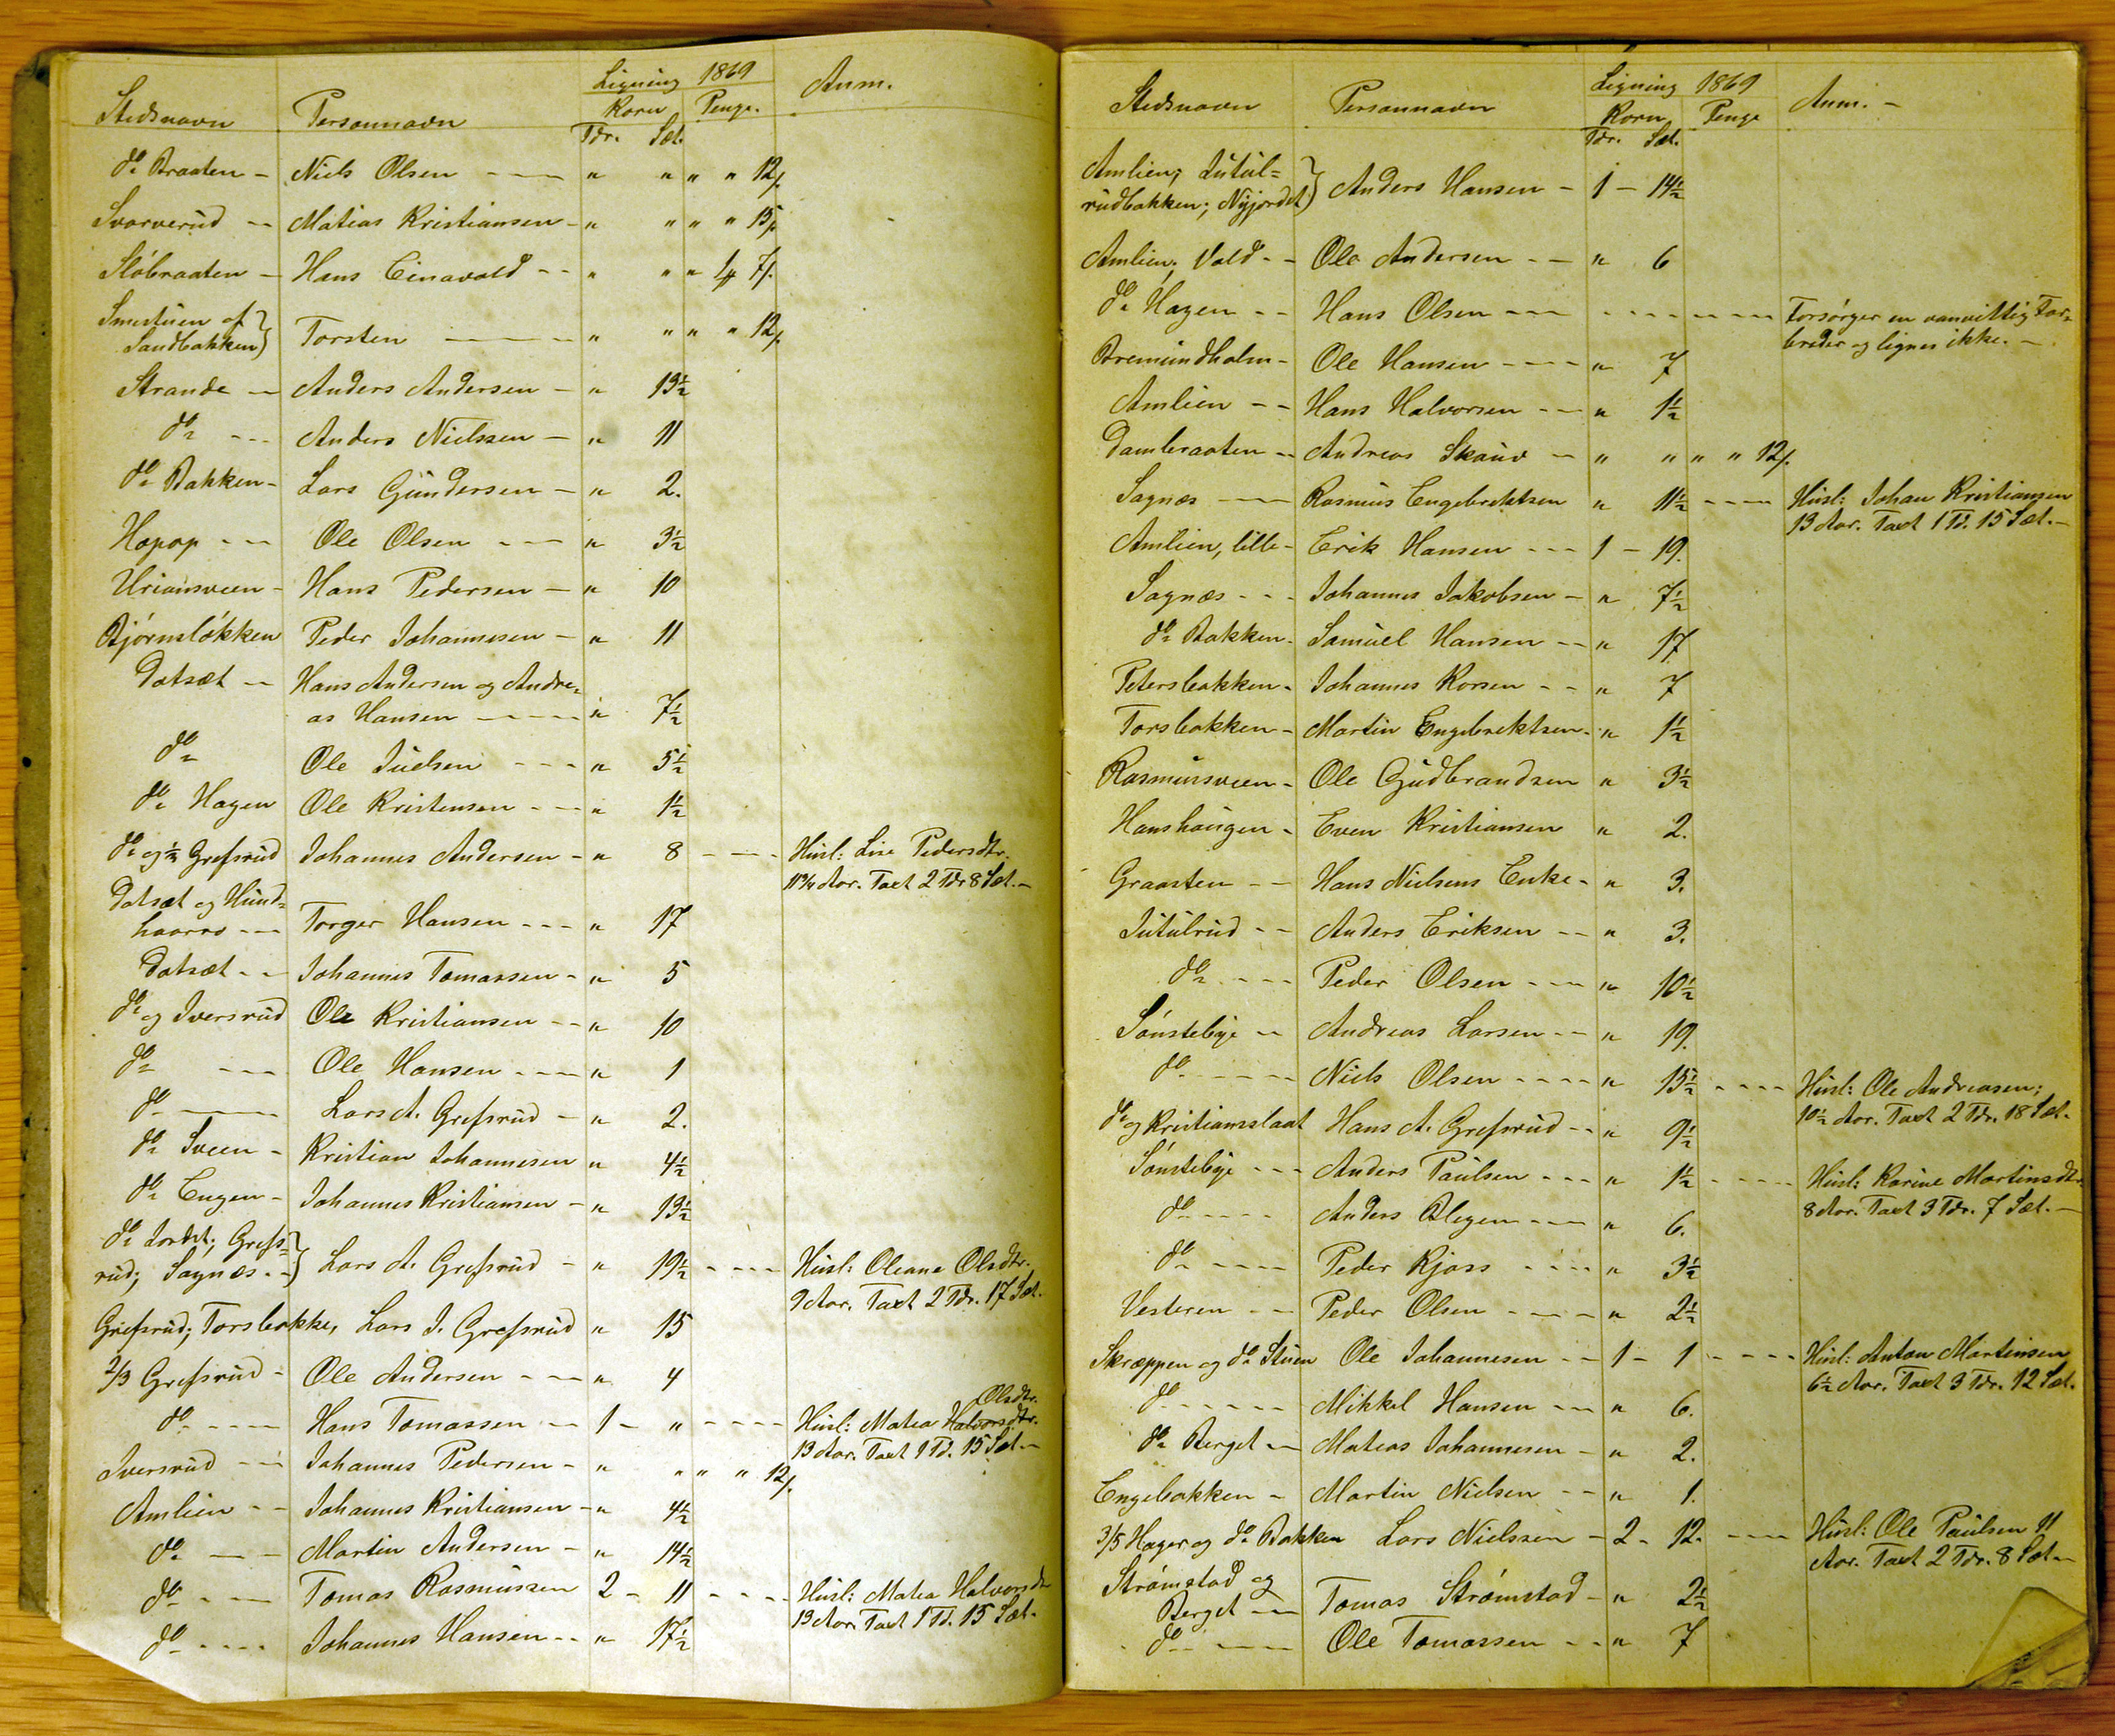 Ligning 1869
Stedsnavn Personnavn Korn Penge. Anm.
Tdr. Sæt.
do Braaten - Niels Olsen - - - " " " " 12/.
Svarverud - - Matias Kristiansen - " " " " 15/.
Slöbraaten - Hans Einavold - - " " " 1/4 7/.
Smestuen af
Sandbakken) Torsten - - - " " " " 12/.
Strande - Anders Andersen - " 13½
do - - - Anders Nielssen - " 11
do Bakken - Lars Gundersen - " 2.
Hopop - - - Ole Olsen - - - " 3½
Uriansveen - Hans Pedersen - " 10
Bjørnsløkken Peder Johannesen - " 11
Dotsæt - - Hans Andersen og Andre=
as Hansen - - - " 7½
do Ole Juelsen - - - " 5½
do Hagen Ole Kristensen - - - " 1½
do og ½ Grefsrud Johannes Andersen - " 8 - - - Husl: Lise Pedersdtr.
11¾ Aar. Taxt 2 Tdr 8 Sæt. -
Dotsæt og Hund=
haarro - - - Torger Hansen - - - " 17
Dotsæt - - Johannes Tomassen - " 5
do og Iversrud Ole Kristiansen - - " 10
do - - - Ole Hansen - - - " 1
do - - - Lars A. Grefsrud - " 2.
do Sveen - Kristian Johannesen " 4½
do Engen - Johannes Kristiansen - " 13½
do Jordet; Grefs=
rud; Sagnæs. -) Lars A. Grefsrud - " 19½ - - - Husl: Oleane Olsdtr.
9 Aar. Taxt 2 Tdr. 17 Sæt.
Grefsrud; Torsbakke, Lars J. Grefsrud " 15
2/3 Grefsrud - Ole Andersen - - - " 4
Olsdtr.
do - - - Hans Tomassen - - 1 - " - - - - Husl: Matea Halvorsdtr.
13 Aar. Taxt 1 Td. 15 Sæt. -
Iversrud - - Johannes Pedersen - " " " " 12/.
Amlien - - Johannes Kristiansen - " 4½
do - - - Martin Andersen - " 14½
do - - - Tomas Rasmussen 2 - 11 - - - - Husl: Matea Halvorsdtr
13 Aar. Taxt 1 Td. 15 Sæt.
do - - - - Johannes Hansen - - " 17½
Ligning 1869
Stedsnavn Personnavn Korn Penge Anm. -
Tdr. Sæt.
Amlien; Jutul=
rudbakken; Nyjordet) Anders Hansen - 1 - 14½
Amlien; Vold - - Ole Andersen - - " 6
do Hagen - - Hans Olsen - - - - - - - - - - Forsörger en vanvittig For=
breder og lignes ikke. -
Bremundholm - Ole Hansen - - - " 7
Amlien - - Hans Halvorsen - - " 1½
Dambraaten - - Andreas Skauv - " " " " 12/.
Sagnæs - - Rasmus Engebrektsen " 11½ - - - Husl: Johan Kristiansen
13 Aar. Taxt 1 Td. 15 Sæt. -
Amlien, lille - Erik Hansen - - - 1 - 19.
Sagnæs - - - Johannes Jakobsen - " 7½
do Bakken - Samuel Hansen - - " 17
Petersbakken - Johannes Korsen - - " 7
Torsbakken - Martin Engebrektsen - " 1½
Rasmusveen - Ole Gudbrandsen " 3½
Hanshaugen - Even Kristiansen " 2.
Graasten - - Hans Nielsens Enke - " 3.
Jutulrud - - Anders Eriksen - - " 3.
do - - - Peder Olsen - - - " 10½
Sönstebye - - Andreas Larsen - - " 19.
do - - - Niels Olsen - - - - " 15½ - - - - Husl: Ole Andreasen;
10½ Aar. Taxt 2 Tdr. 18 Sæt.
do og Kristianslaat Hans A. Grefsrud - - " 9½
Sönstebye - - - Anders Paulsen - - - " 1½ - - - - Husl: Karine Martinsdtr.
8 Aar. Taxt 3 Tdr. 7 Sæt. -
do - - - - Anders Blegen - - - " 6.
do - - - - Peder Kjoss - - - - " 3½
Vesteren - - Peder Olsen - - - - " 2½
Skræppen og do Stuen Ole Johannesen - - 1 - 1 - - - - Husl: Anton Martinsen
6½ Aar. Taxt 3 Tdr. 12 Sæt.
do - - - - - Mikkel Hansen - - - " 6.
do Berget - - Mateas Johannesen - " 2.
Engebakken - Martin Nielsen - - " 1.
3/5 Hager og do Bakken Lars Nielssen - 2 - 12. - - - Husl: Ole Paulsen 11
Aar. Taxt 2 Tdr. 8 Sæt. -
Strömstad og
Berget - - Tomas Strömstad - " 2½
do - - - - Ole Tomassen - - " 7